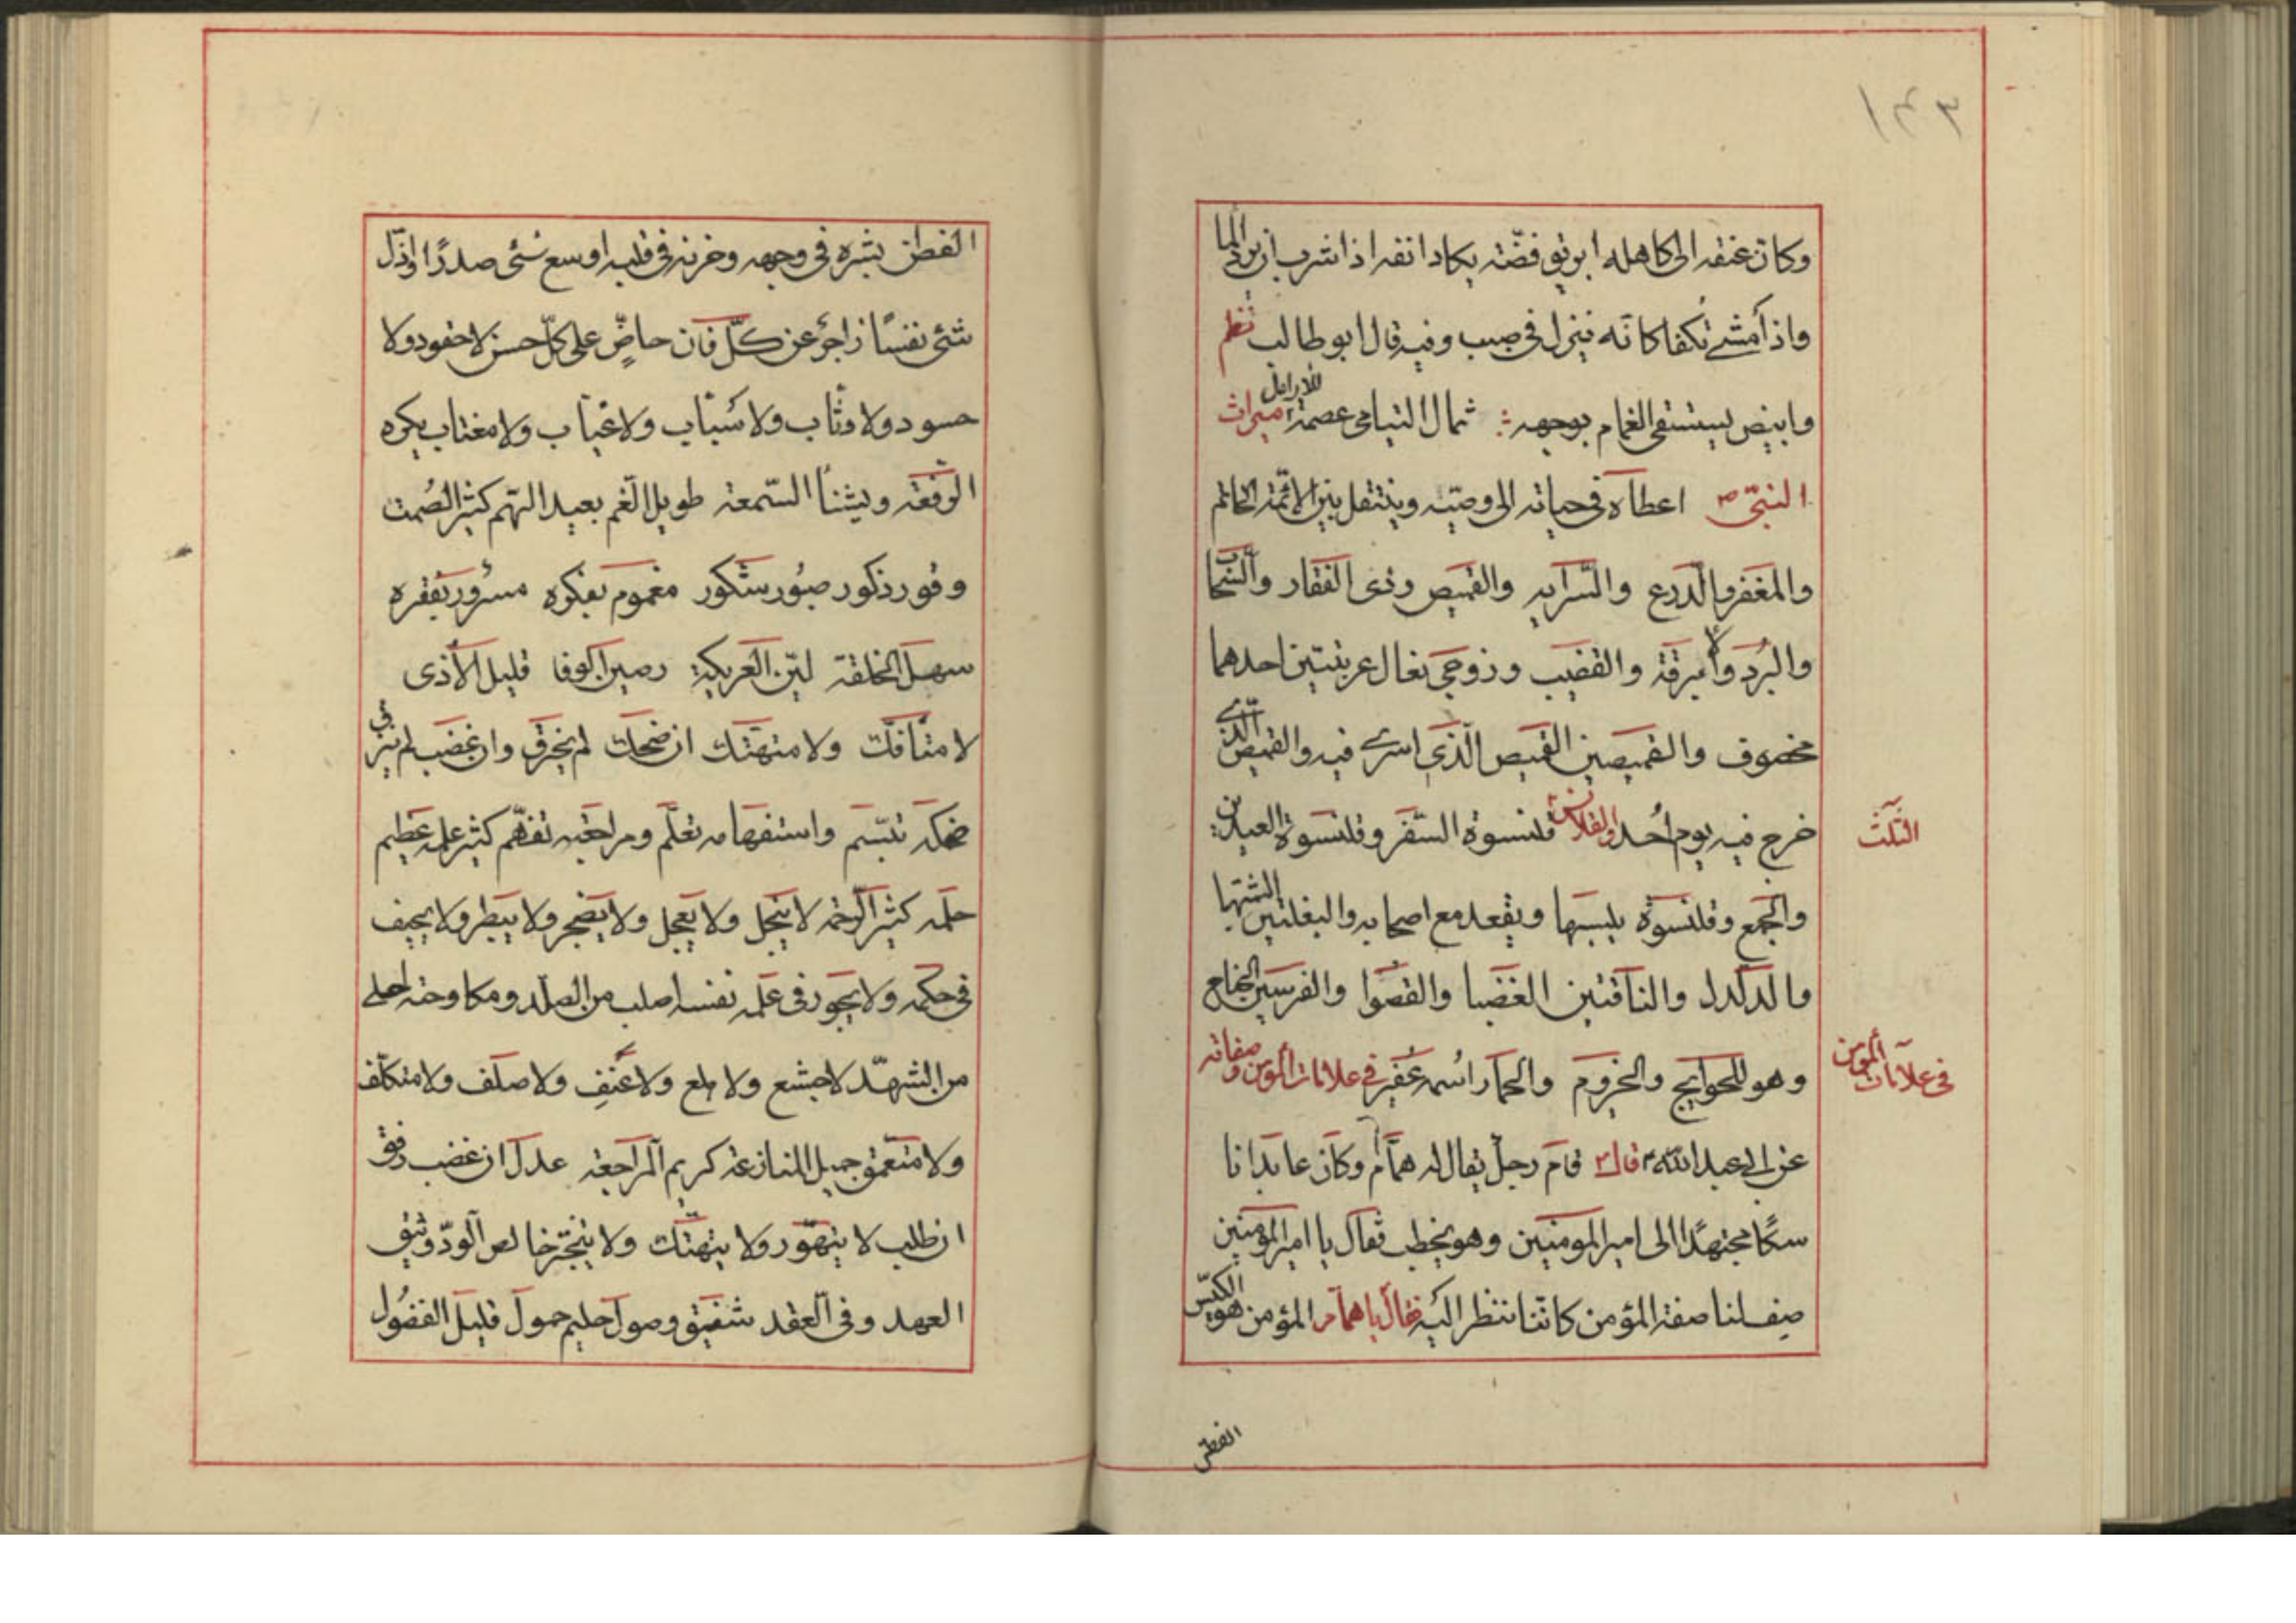 ١٤٣
وكان عنقه الى كاهله ابريق فضّة يكاد انفه اذا شرب ان يرد الما
واذا مشى تكفا كانّه ينزل فى صبب وفيه قال ابو طالب نظم
وابيض يستسقى الغمام بوجهه : ثمال اليتامى عصمة للارامل ميراث
النبىّ ص اعطاه فى حياته الى وصيّه وينتقل بين الائمّة الخاتم
والمغفر والدرع والسّرايه والقميص وذى الفقار والسّحاب
والبُرد والابرقة والقضيب وزوجى نعال عربيتين احدهما
مخصوف والقميصين القميص الّذى اسرى فيه والقميص الّذى
خرج فيه يوم اُحد والقلانس الثلث قلنسوة السّفر وقلنسوة العيدين
والجمع وقلنسوة يلبسها ويقعد مع اصحابه والبغلتين الشّهبا
والدلدل والناقتين الغضبا والقصوا والفرسين الجناح
وهو للحوايج والحيزوم والحمار اسمه عُفَير فى علامات المؤمن وصفاته
فى علامات المؤمن
عن ابى عبد الله ع قال قام رجل يقال له همّام وكان عابدا نا
سكًا مجتهدًا الى امير المومنين وهو يخطب فقال يا امير المؤمنين
صِف لنا صفة المؤمن كانّنا ننظر اليه فقال يا همام المؤمن هو الكيّس
الفطن
الفطن بشره فى وجهه وحزنه فى قلبه اوسع شئى صدرًا واذلّ
شئى نفسًا زاجر عن كلّ فان حاضّ على كلّ حسن لا حقود ولا
حسود ولا وثّاب ولا سبّاب ولا عيّاب ولا مغتاب يكره
الرفعة ويشنأ السّمعة طويل الغم بعيد الهم كثير الصُمت
وقور ذكور صبُور شكور مغموم بفكره مسرُور بفقره
سهل الخلقة ليّن العريكة رصين الوفا قليل الاذى
لا متأفّك ولا متهتّك ان ضحك لم يخرق وان غضب لم ينزق
ضحكه تبسّم واستفهامه تعلّم ومراجعته تفهّم كثير علمه عظيم
حلمه كثير الرحمه لا يبخل ولا يعجل ولا يضجر ولا يبطر ولا يحيف
فى حكمه ولا يجور فى علمه نفسه اصلب من الصلد ومكاوحته احلى
من الشهد لا جشع ولا هلع ولا عَنِف ولا صلف ولا متكلّف
ولا متعمق جميل المنازعة كريم المراجعة عدل ان غضب رفق
ان طلب لا يتهوّر ولا يتهتّك ولا يتجبّر خالص الودّ وثيق
العهد وفى العقد شفيق وصول حليم حمول قليل الفضُول